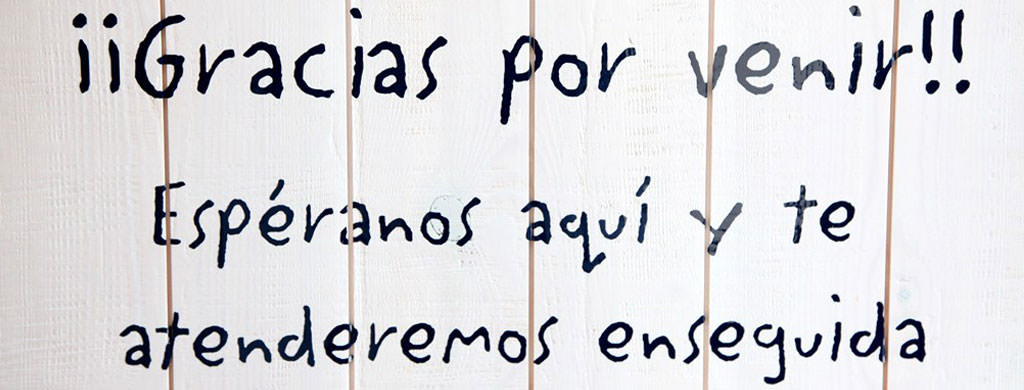 ¡¡Gracias por venir!!
Espéranos aquí y te
atenderemos enseguida